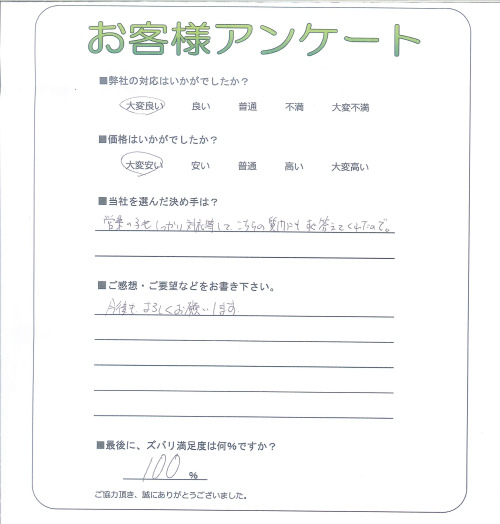 お客様アンケート
■弊社の対応はいかがでしたか？
大変良い 良い 普通 不満 大変不満
■価格はいかがでしたか？
大変安い 安い 普通 高い 大変高い
■当社を選んだ決め手は？
営業の しっかり対応して、こちらの質問にも 答えてくれたので。
■ご感想・ご要望などをお書き下さい。
今後もよろしくお願いします
■最後に、ズバリ満足度は何％ですか？
100 %
ご協力頂き、誠にありがとうございました。